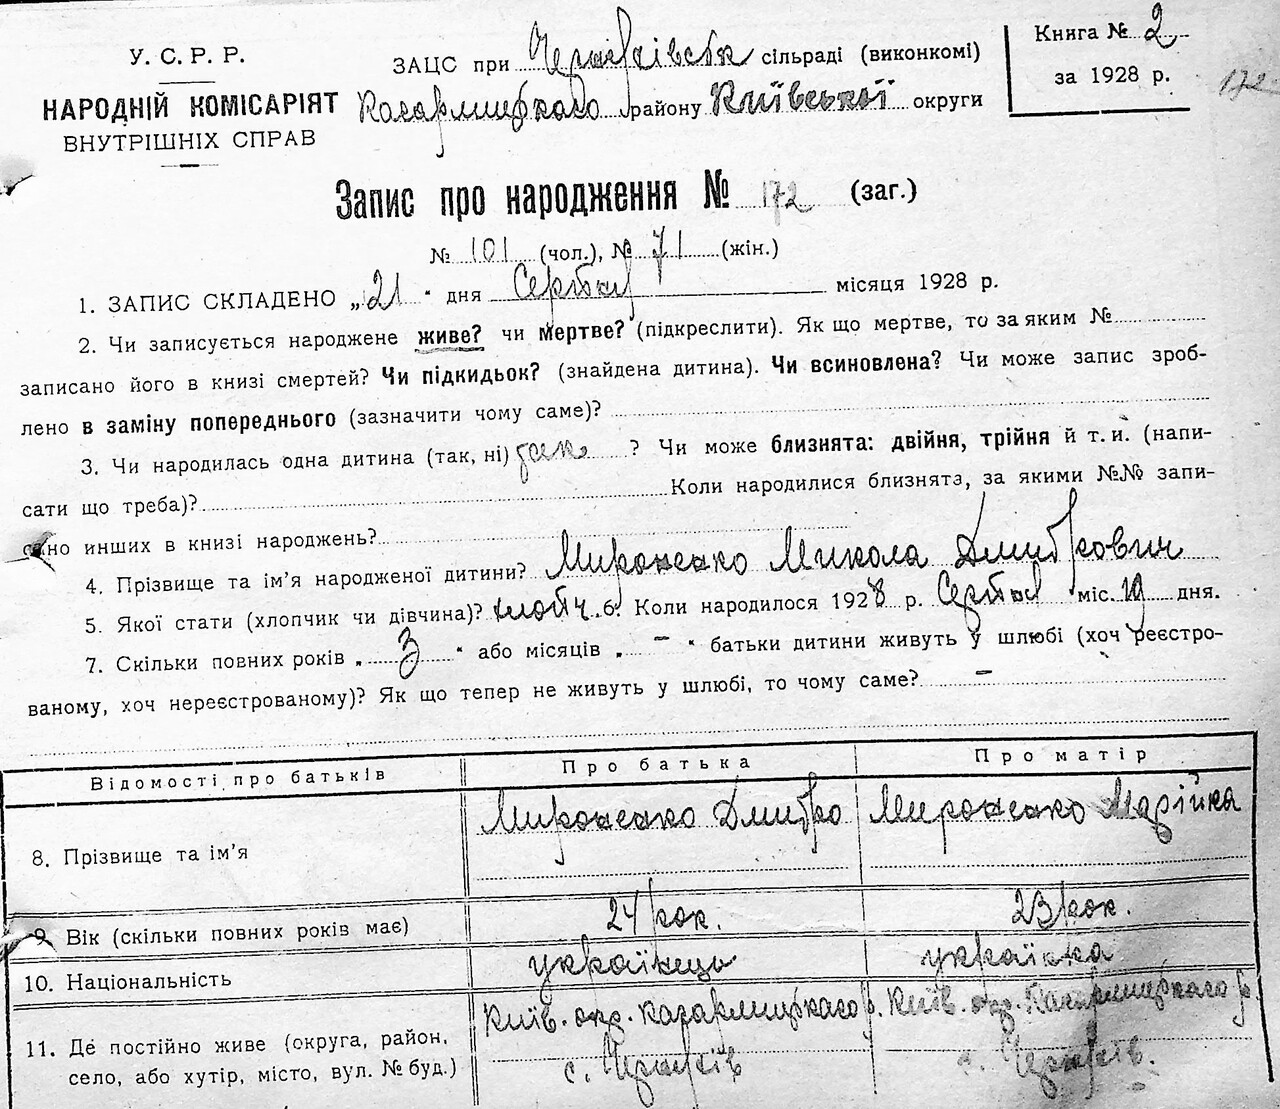 У. С. Р. Р.
НАРОДНІЙ КОМІСАРІЯТ
ВНУТРІШНІХ СПРАВ
ЗАЦС при сільраді (виконкомі)
Кагарлицького району Київської округи
Книга № 2
за 1928 р.
172
Запис про народження № 172 (заг.)
№ 101 (чол.), № 71 (жін.)
1. ЗАПИС СКЛАДЕНО „21“ дня Серпня місяця 1928 р.
2. Чи записується народжене живе? чи мертве? (підкреслити). Як що мертве, то за яким №
записано його в книзі смертей? Чи підкидьок? (знайдена дитина). Чи всиновлена? Чи може запис зроб-
лено в заміну попереднього (зазначити чому саме)?
3. Чи народилась одна дитина (так, ні) так ? Чи може близнята: двійня, трійня й т. и. (напи-
сати що треба)? Коли народилися близнята, за якими №№ запи-
сано инших в книзі народжень?
4. Прізвище та ім’я народженої дитини? Мироненко Микола Дмитрович
5. Якої стати (хлопчик чи дівчина)? хлопч. 6. Коли народилося 1928 р. Серпня міс. 19 дня.
7. Скільки повних років „ 3 “ або місяців „ – “ батьки дитини живуть у шлюбі (хоч реєстро-
ваному, хоч нереєстрованому)? Як що тепер не живуть у шлюбі, то чому саме? –
Відомості про батьків Про батька Про матір
8. Прізвище та ім’я Мироненко Дмитро Мироненко Марійка
9. Вік (скільки повних років має) 24 рок. 23 рок.
10. Національність українець українка
11. Де постійно живе (округа, район, Київ. окр. Кагарлицького р. Київ. окр. Кагарлицького р.
село, або хутір, місто, вул. № буд.) с. с.